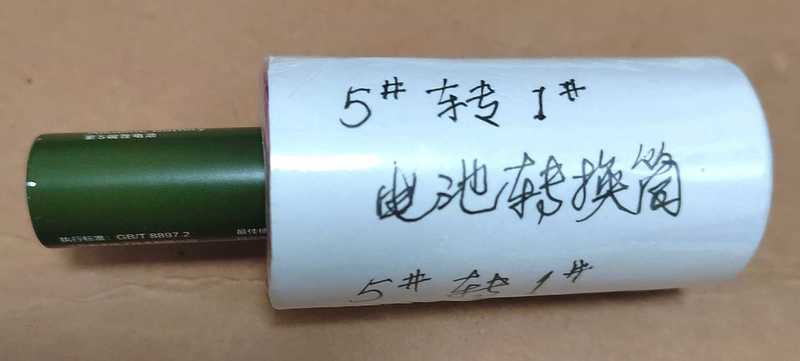 5# 转 1#
电池转换筒
5# 转 1#
执行标准：GB/T 8897.2